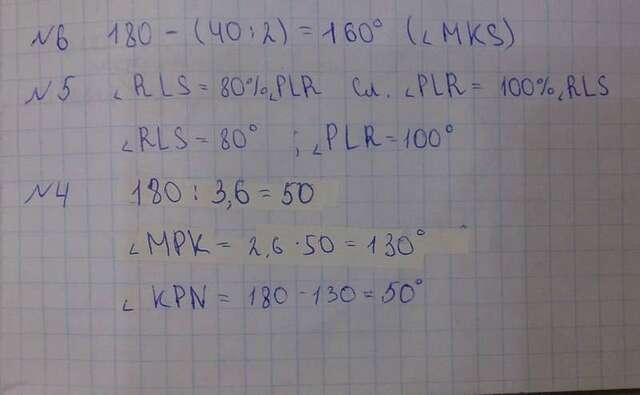 №6 180 - (40:2) = 160° (∠MKS)
№5 ∠RLS = 80%∠PLR Сл. ∠PLR = 100%∠RLS
∠RLS = 80° ; ∠PLR = 100°
№4 180 : 3,6 = 50
∠MPK = 2,6 · 50 = 130°
∠KPN = 180 - 130 = 50°